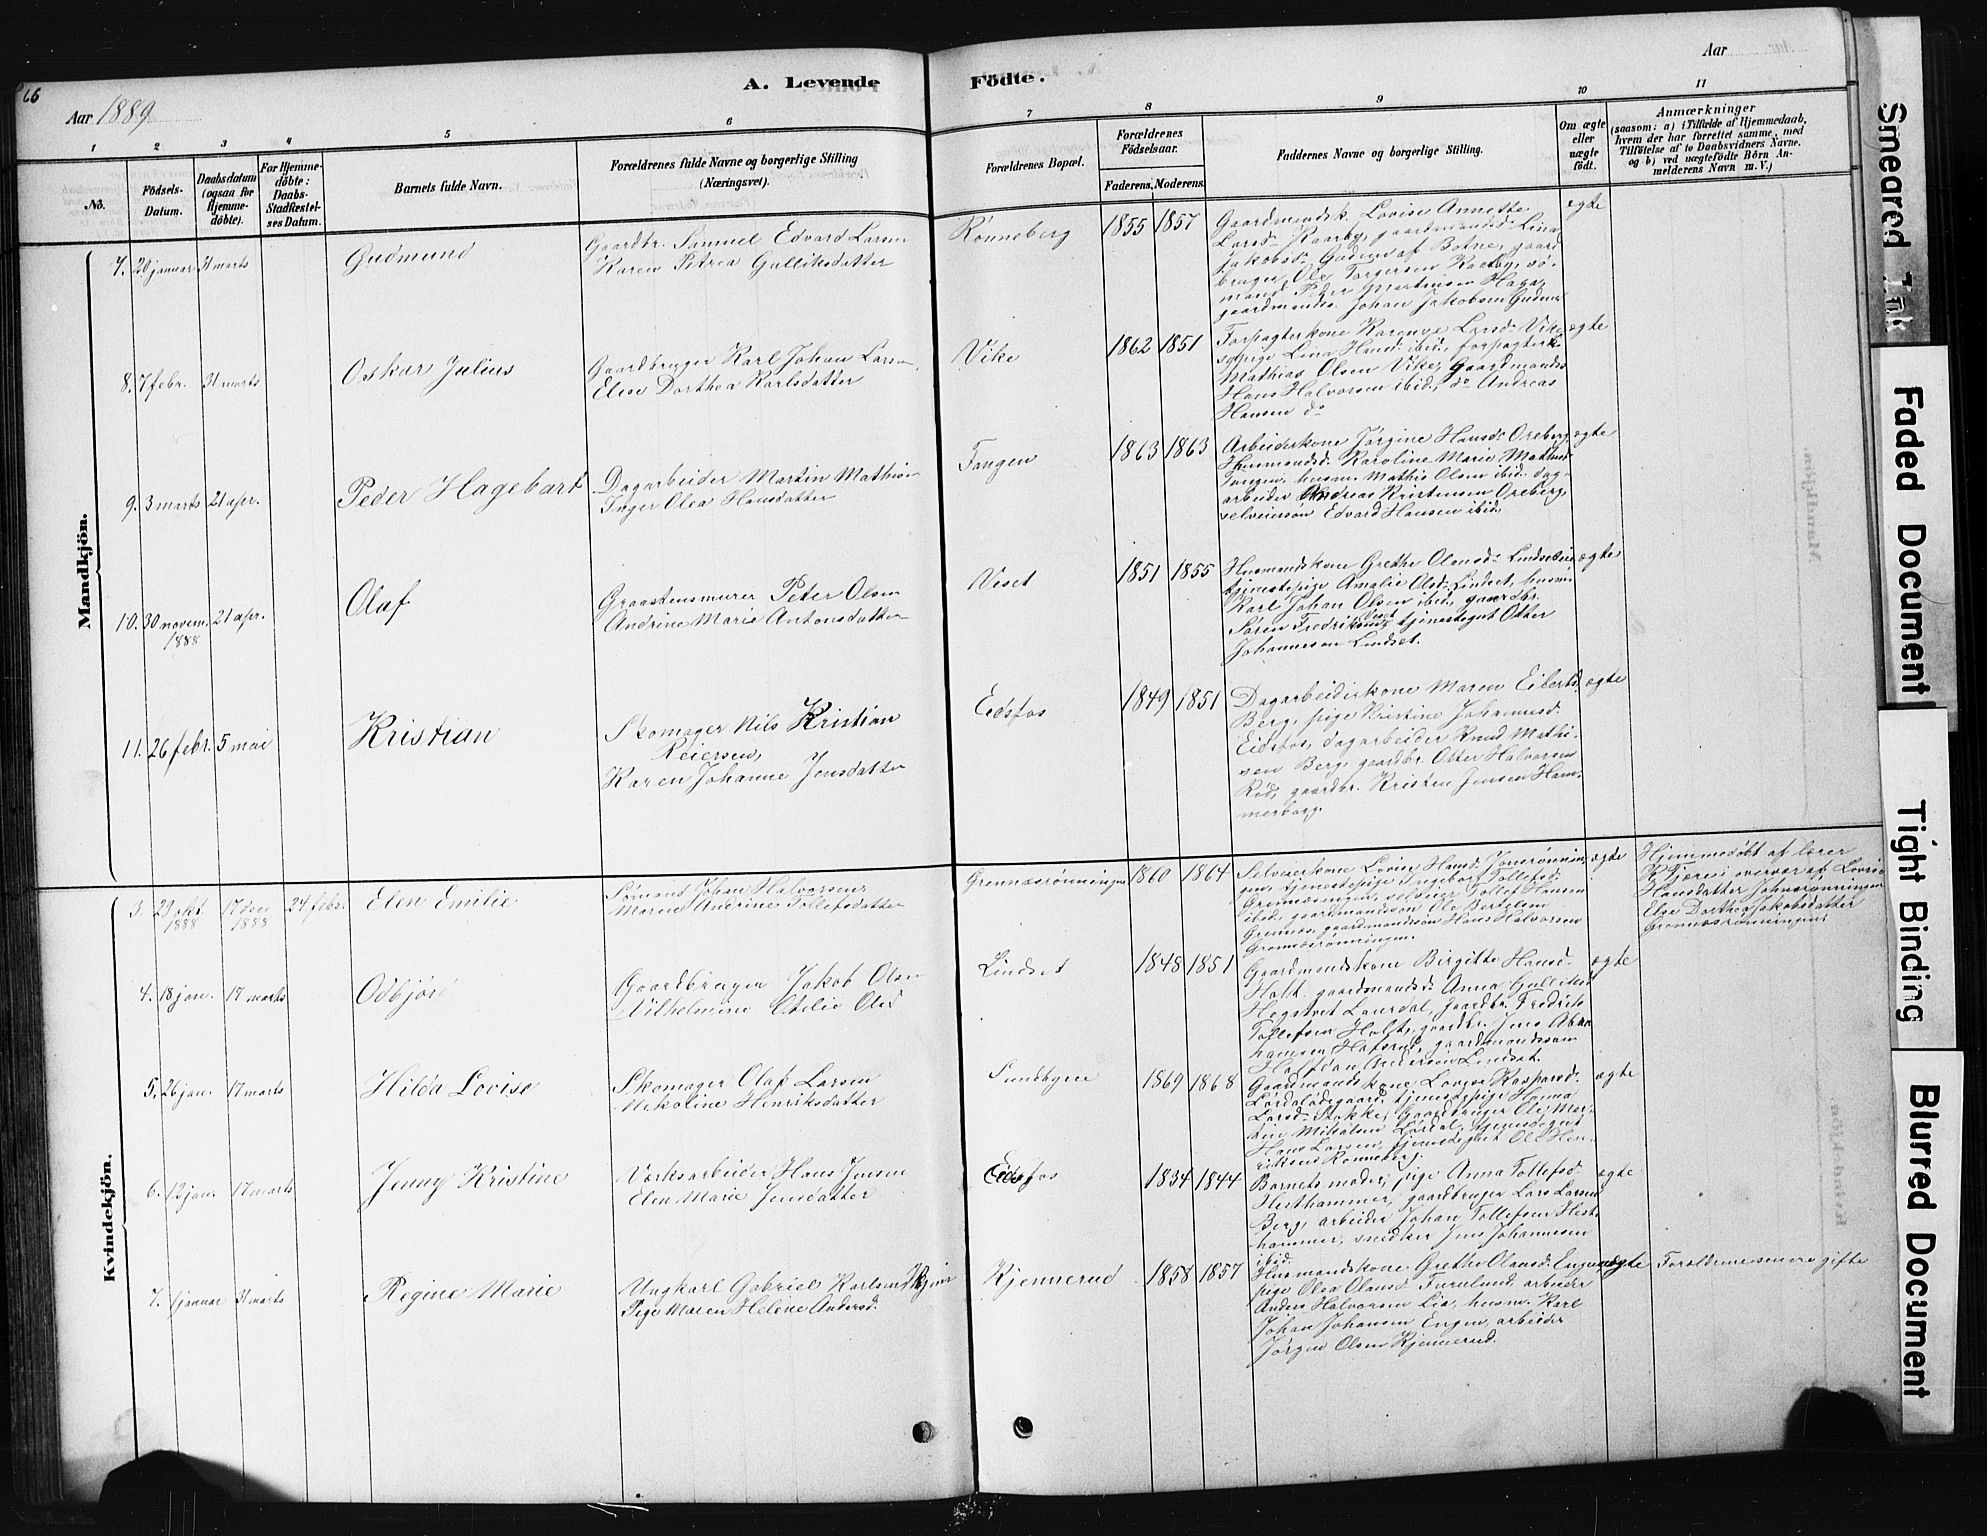 66
A. Levende Födte.
Aar
Aar 1889
1 2 3 4 5 6 7 8 9 10 11
No.
Födsels-
Datum.
Daabsdatum
(ogsaa for
Hjemme-
döbte).
For Hjemme-
döbte:
Daabs-
Stadfæstel-
ses Datum.
Barnets fulde Navn.
Forældrenes fulde Navne og borgerlige Stilling
(Næringsvei).
Forældrenes Bopæl.
Forældrenes
Födselsaar.
Faderens. Moderens.
Faddernes Navne og borgerlige Stilling.
Om ægte
eller
uægte
födt.
Anmærkninger
(saasom: a) i Tilfælde af Hjemmedaab,
hvem der har forrettet samme, med
Tilföielse af to Daabsvidners Navne.
og b) ved uægtefödte Börn An-
melderens Navn m. V.)
Mandkjön.
7. 20 januar 31 marts
Gudmund
Gaardbr. Samuel Edvard Larsen
Karen Petrea Gulliksdatter
Rönneberg
1855 1857
Gaardmandsk. Lovise Annette
Larsd. Kaarby, gaardmandsd. Lina
Jakobsd. Gudem af Botne, gaard
bruger Ole Torgersen Kaarby, sö-
mand Peder Martinsen Haga,
gaardmands. Johan Jakobsen Gudem
ægte
8. 7 febr. 31 marts
Oskar Julius
Gaardbruger Karl Johan Larsen,
Elise Dorthea Karlsdatter
Vike
1862 1851
Forpagterkone Karense Larsd. Vike
sypige Lina Hansd. ibid., forpagter
Mathias Olsen Vike, Gaardmands
Hans Halvorsen ibid., do Andreas
Hansen do
ægte
9. 3 marts 21 apr.
Peder Hagebart
Dagarbeider Martin Mathisen
Inger Olea Hansdatter
Tangen
1863 1863
Arbeiderkone Jörgine Hansd. Oreberg
Husmandsd. Karoline Marie Mathisd.
Tangen, husm. Mathis Olsen ibid. dag-
arbeider Andreas Kristensen Oreberg,
selveiersön Edvard Hansen ibid.
ægte
10. 30 novem. 21 apr.
1888
Olaf
Graastensmurer Peter Olsen
Andrine Marie Antonsdatter
Veset
1851 1855
Husmandskone Grethe Olausd. Lindseteie
tjenestepige Amalie Olsd. Lindset, husm.
Karl Johan Olsen ibid., gaardbr.
Sören Fredriksen Veset, tjenestegut Otter
Johannesen Lindset.
ægte
11. 26 febr. 5 mai
Kristian
Skomager Nils Kristian
Reiersen,
Karen Johanne Jensdatter
Eidsfos
1849 1851
Dagarbeiderkone Maren Eilertsd.
Berg, pige Kristine Johannesd.
Eidsfos, dagarbeider Knud Mathi-
sen Berg, gaardbr. Otter Halvorsen
Röd, gaardbr. Kristen Jensen Ham-
merborg.
ægte
Kvindekjön.
3. 29 okt. 17 dec 24 febr.
1888 1888
Elen Emilie
Sömand Johan Halvorsen,
Maren Andrine Tollefsdatter
Grennesrönningen
1860 1864
Selveierkone Lovise Hansd. Jonsrönnin-
gen, tjenestepige Ingeborg Tollefsd.
Grennesengen, selveier Tollef Hansen
ibid., gaardmandssön Ole Bertelsen
Grennes, gaardmandssön Hans Halvorsen
Grennesrönningen.
ægte
Hjemmedöbt af lærer
K. Tjære i overvær af Lovise
Hansdatter Johnsrönningen
Else Dorthea Jakobsdatter
Grennesrönningen
4. 18 jan. 17 marts
Odbjör
Gaardbruger Jakob Olsen
Vilhelmine Otilie Olsd
Lindset
1848 1851
Gaardmandskone Birgitte Hansd.
Holt, gaardmandsd. Anna Gulliksd.
Hegstvet Laurdal, gaardbr. Fredrik
Tollefsen Holt, gaardbr. Jens Abra-
hamsen Hafsrud, gaardmandssön
Halfdan Andersen Lindset.
ægte
5. 26 jan. 17 marts
Hilda Lovise
Skomager Olaf Larsen
Nikoline Henriksdatter
Sundbyeie
1869 1868
Gaardmandskone Lovise Kaspersd.
Lördalödegaard, tjenestepige Hanna
Larsd. Stokke, Gaardbruger Ole Mar-
tin Mikalsen Lördal, tjenestegut
Hans Larsen, tjenestegut Ole Hen-
riksen Rönneberg.
ægte
6. 12 jan. 17 marts
Jenny Kristine
Værksarbeider Hans Jensen
Elen Marie Jensdatter
Eidsfos
1834 1844
Barnets moder, pige Anna Tollefsd.
Hesthammer, gaardbruger Lars Larsen
Berg, arbeider Johan Tollefsen Hest-
hammer, snedker Jens Johannesen
ibid.
ægte
7. 1 januar 31 marts
Regine Marie
Ungkarl Gabriel Karlsen
Pige Maren Helene Andersd.
Kjennerud
1858 1857
Husmandskone Grethe Olausd. Engen
pige Olea Olausd. Furulund, arbeider
Anders Halvorsen Lia, husm. Karl
Johan Johansen Engen, arbeider
Jörgen Olsen Kjennerud.
uægte
Forældrene senere gifte
Smeared Ink
Faded Document
Tight Binding
Blurred Document